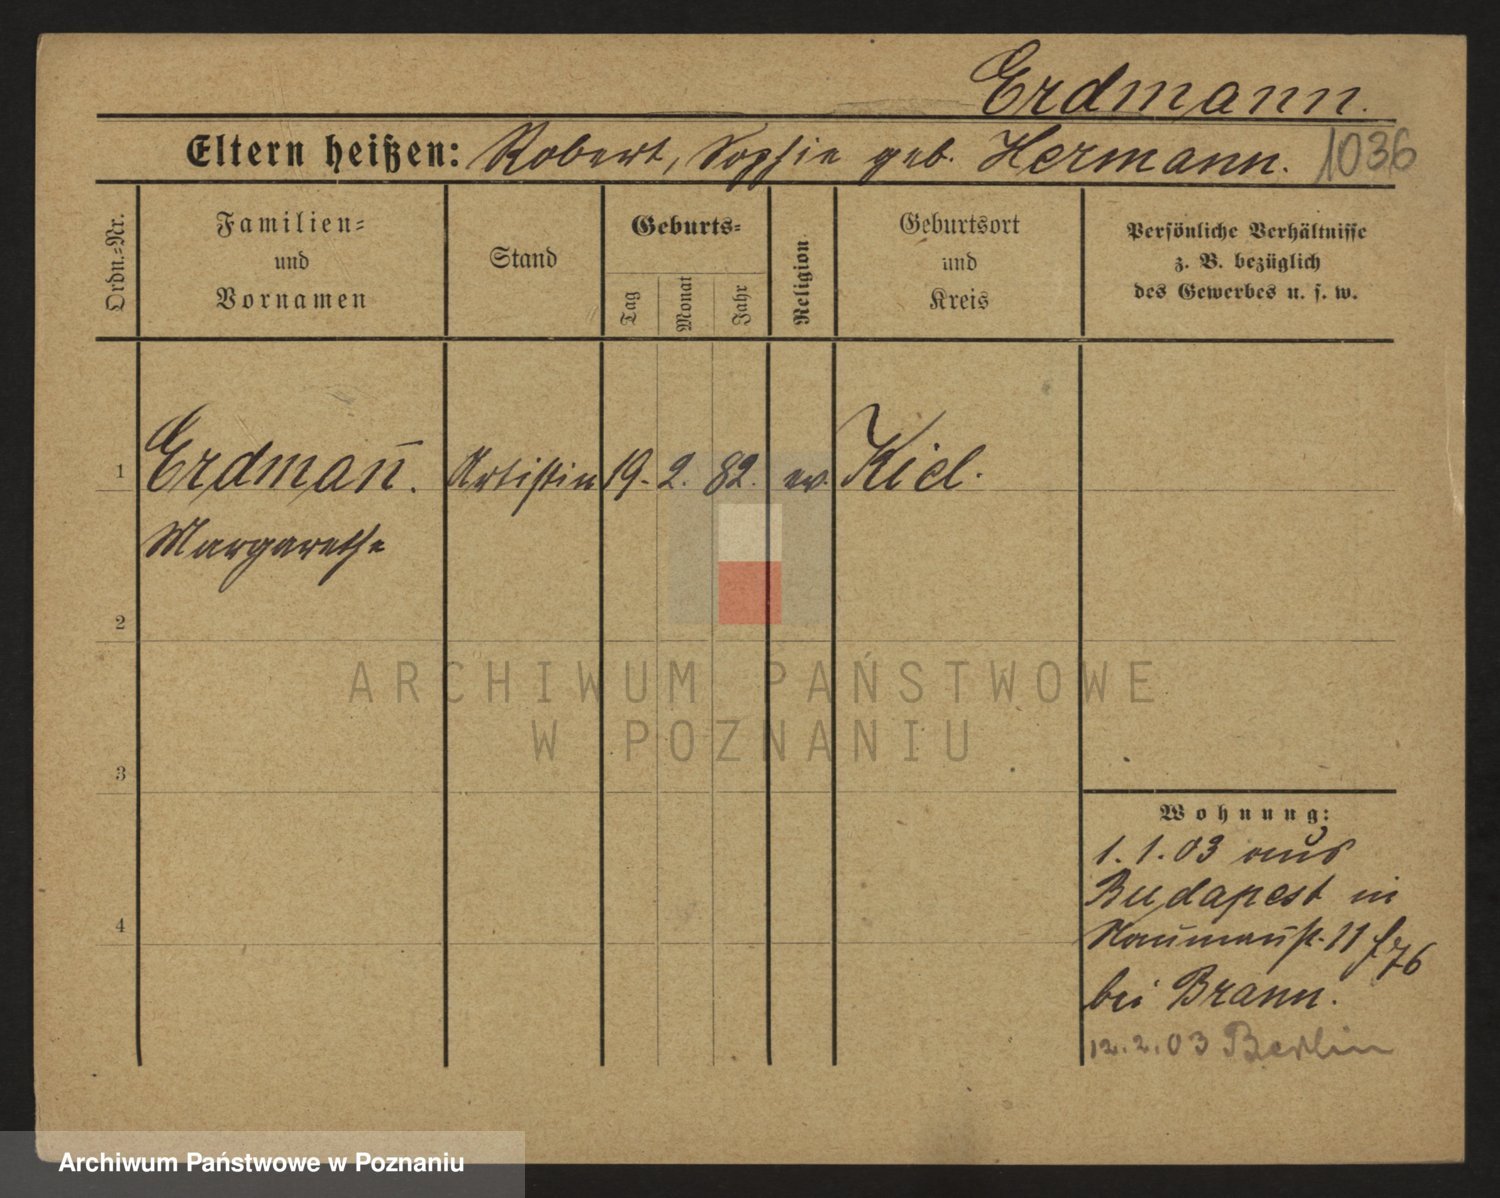 Erdmann.
Eltern heißen: Robert, Sophie geb. Hermann. 1036
Ordn.-Nr.
Familien- und Vornamen
Stand
Geburts-
Tag
Monat
Jahr
Religion
Geburtsort und Kreis
Persönliche Verhältnisse z. B. bezüglich des Gewerbes u. s. w.
1 Erdman̄. Artistin 19. 2. 82. ev. Kiel.
Margarethe
2
3
4
Wohnung:
1. 1. 03 aus
Budapest in
Naumanstr. 11 f 76
bei Brann.
12. 2. 03 Berlin
ARCHIWUM PAŃSTWOWE
W POZNANIU
Archiwum Państwowe w Poznaniu